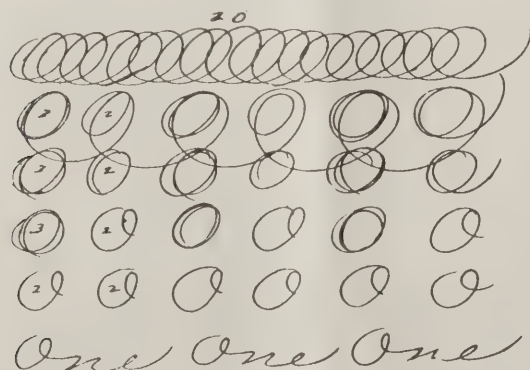 20
3 2
3 2
3 2
2 2
One One One